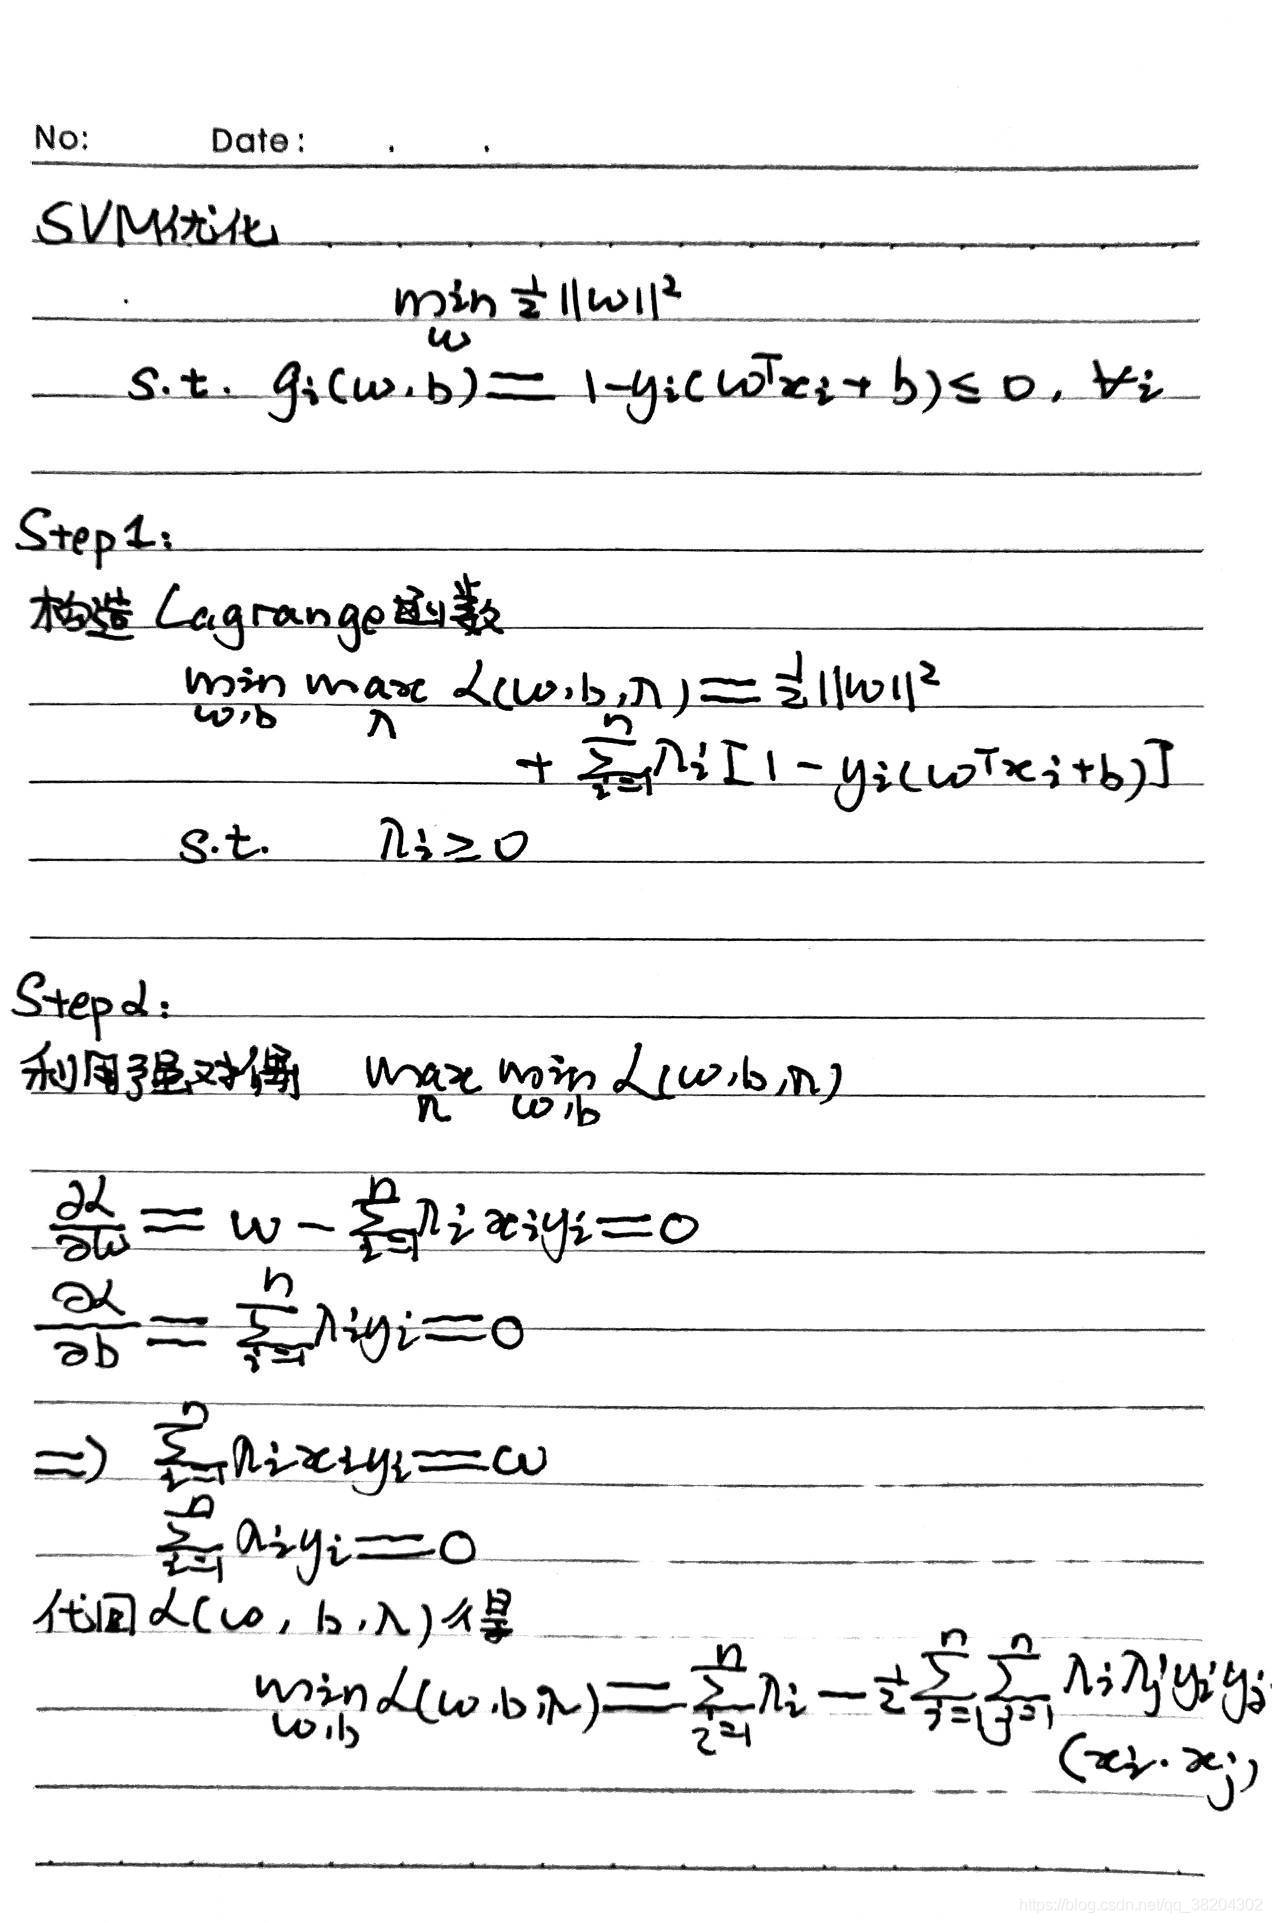 No: Date: . .
SVM优化
min_w ½||w||²
s.t. gᵢ(w,b) = 1-yᵢ(wᵀxᵢ+b) ≤ 0, ∀i
Step1:
构造Lagrange函数
min_{w,b} max_λ L(w,b,λ) = ½||w||²
+ ∑_{i=1}^n λᵢ[1-yᵢ(wᵀxᵢ+b)]
s.t. λᵢ ≥ 0
Step2:
利用强对偶 max_λ min_{w,b} L(w,b,λ)
∂L/∂w = w - ∑_{i=1}^n λᵢxᵢyᵢ = 0
∂L/∂b = ∑_{i=1}^n λᵢyᵢ = 0
=> ∑_{i=1}^n λᵢxᵢyᵢ = w
∑_{i=1}^n aᵢyᵢ = 0
代回L(w,b,λ)得
min_{w,b} L(w,b,λ) = ∑_{i=1}^n λᵢ - ½∑_{i=1}^n∑_{j=1}^n λᵢλⱼyᵢyⱼ
(xᵢ·xⱼ)
https://blog.csdn.net/qq_38204302